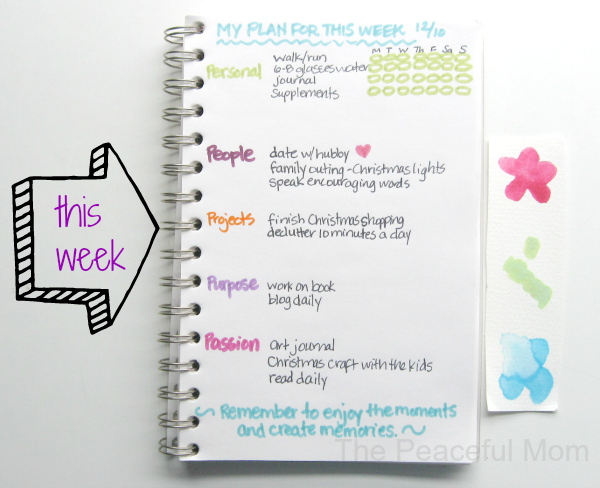 MY PLAN FOR THIS WEEK 12/10
M T W Th F Sa S
Personal
walk/run
6-8 glasses water
journal
supplements
People
date w/hubby
family outing - Christmas lights
speak encouraging words
this
week
Projects
finish Christmas shopping
declutter 10 minutes a day
Purpose
work on book
blog daily
Passion
art journal
Christmas craft with the kids
read daily
~ Remember to enjoy the moments
and create memories. ~
The Peaceful Mom